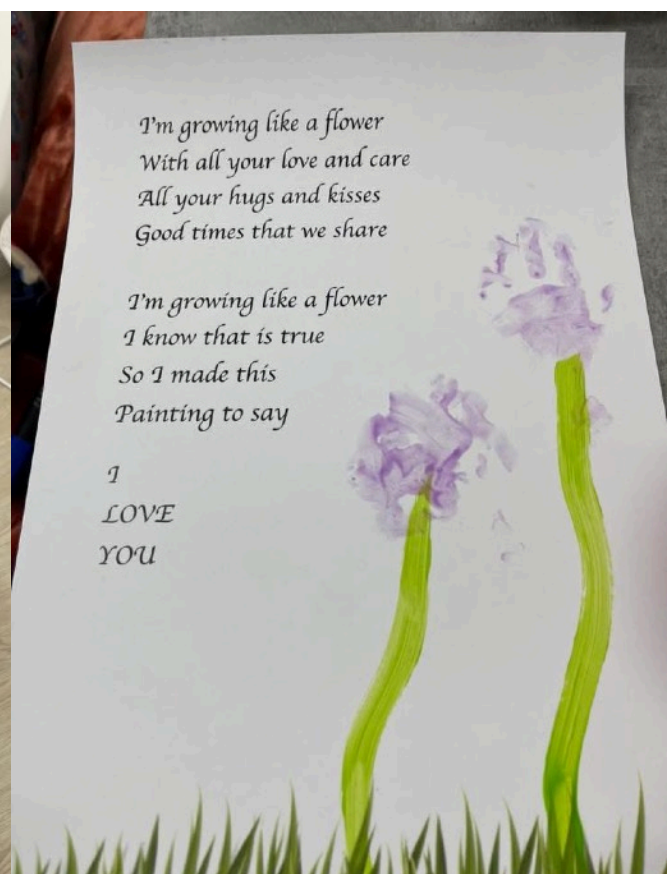 I'm growing like a flower
With all your love and care
All your hugs and kisses
Good times that we share
I'm growing like a flower
I know that is true
So I made this
Painting to say
I
LOVE
YOU